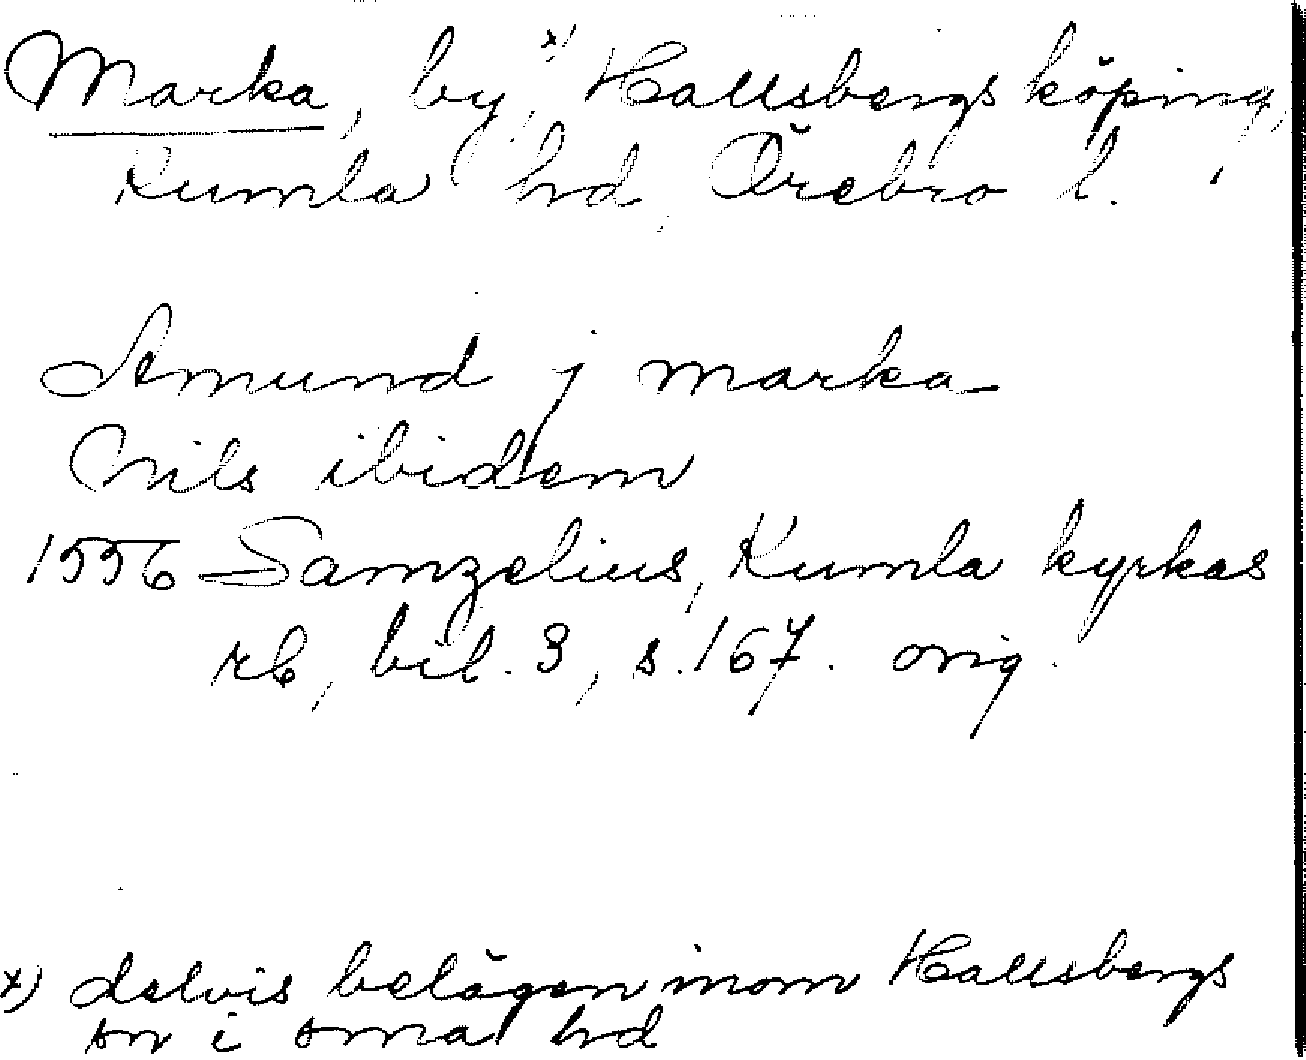 Marka, by, x) Hallsbergs köping,
Kumla hd, Örebro l.
Amund j marka
Nils ibidem
1556 Samzelius, Kumla kyrkas
rb, bil. 3, s. 167. orig.
x) delvis belägen inom Hallsbergs
sn i sma hd